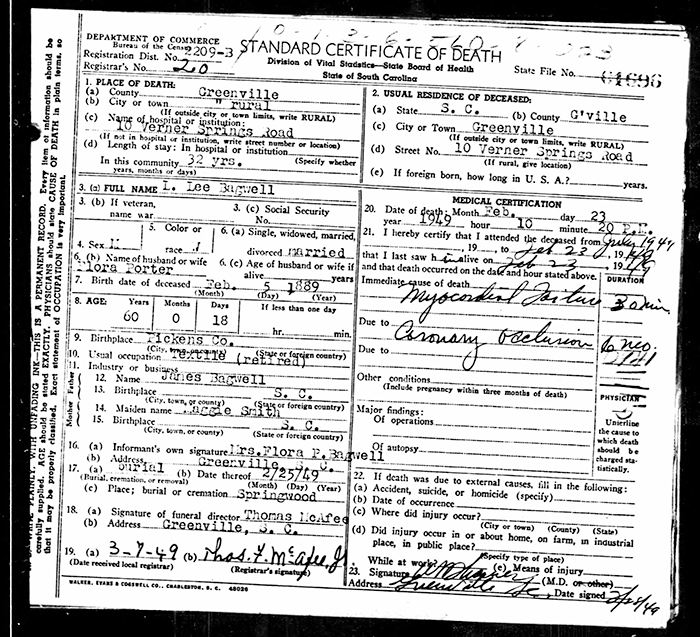 DEPARTMENT OF COMMERCE
Bureau of the Census
STANDARD CERTIFICATE OF DEATH
Division of Vital Statistics—State Board of Health
State of South Carolina
Registration Dist. No. 2209-B
Registrar's No. 20
State File No.
1. PLACE OF DEATH:
(a) County Greenville
(b) City or town " rural
(If outside city or town limits, write RURAL)
(c) Name of hospital or institution:
10 Verner Springs Road
(If not in hospital or institution, write street number or location)
(d) Length of stay: In hospital or institution
In this community 32 yrs. (Specify whether
years, months or days)
2. USUAL RESIDENCE OF DECEASED:
(a) State S. C. (b) County G'ville
(c) City or Town Greenville
(If outside city or town limits, write RURAL)
(d) Street No. 10 Verner Springs Road
(If rural, give location)
(e) If foreign born, how long in U. S. A.? years.
3. (a) FULL NAME L. Lee Bagwell
3. (b) If veteran,
name war
3. (c) Social Security
No.
4. Sex M
5. Color or
race
6. (a) Single, widowed, married,
divorced married
6. (b) Name of husband or wife
Flora Porter
6. (c) Age of husband or wife if
alive years.
7. Birth date of deceased Feb. 5 1889
(Month) (Day) (Year)
8. AGE: Years Months Days If less than one day
60 0 18 hr. min.
9. Birthplace Pickens Co.
(City, town, or county) (State or foreign country)
10. Usual occupation Textile (retired)
11. Industry or business
Father
12. Name James Bagwell
13. Birthplace S. C.
(City, town, or county) (State or foreign country)
Mother
14. Maiden name Maggie Smith
15. Birthplace S. C.
(City, town, or county) (State or foreign country)
16. (a) Informant's own signature Mrs. Flora P. Bagwell
(b) Address Greenville, S. C.
17. (a) burial (b) Date thereof 2/25/49
(Burial, cremation, or removal) (Month) (Day) (Year)
(c) Place; burial or cremation Springwood
18. (a) Signature of funeral director Thomas McAfee
(b) Address Greenville, S. C.
19. (a) 3-7-49 (b) Thos. F. McAfee Jr
(Date received local registrar) (Registrar's signature)
MEDICAL CERTIFICATION
20. Date of death: Month Feb. day 23
year 1949 hour 10 minute 20 P.M.
21. I hereby certify that I attended the deceased from July 1947
, 19 , to Feb 23, 1949
that I last saw him alive on Feb , 1949
and that death occurred on the date and hour stated above.
DURATION
Immediate cause of death
Myocardial Failure 30 min
Due to Coronary Occlusion
Due to
Other conditions
(Include pregnancy within three months of death)
PHYSICIAN
Major findings:
Of operations
Of autopsy
Underline
the cause to
which death
should be
charged sta-
tistically.
22. If death was due to external causes, fill in the following:
(a) Accident, suicide, or homicide (specify)
(b) Date of occurrence
(c) Where did injury occur?
(City or town) (County) (State)
(d) Did injury occur in or about home, on farm, in industrial
place, in public place?
(Specify type of place)
While at work? (e) Means of injury
23. Signature (M.D. or other)
Greenville SC Date signed
WALKER, EVANS & COGSWELL CO., CHARLESTON, S. C. 48026
WITH UNFADING INK—THIS IS A PERMANENT RECORD. Every item of information should be
carefully supplied. AGE should be stated EXACTLY. PHYSICIANS should state CAUSE OF DEATH in plain terms, so
it may be properly classified. Exact statement of OCCUPATION is very important.